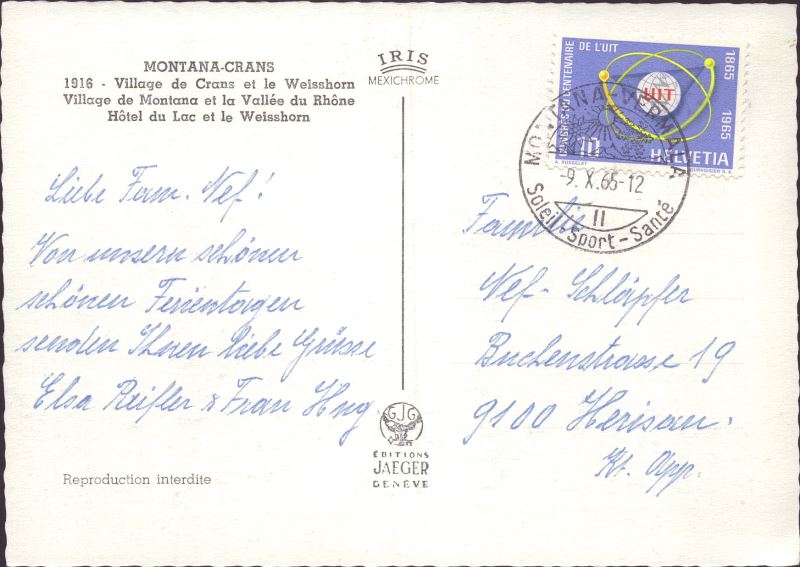 MONTANA-CRANS
1916 - Village de Crans et le Weisshorn
Village de Montana et la Vallée du Rhône
Hôtel du Lac et le Weisshorn
IRIS
MEXICHROME
Liebe Fam. Nef!
Von unsern schönen
schönen Ferientagen
senden Ihnen liebe Grüsse
Elsa Reifler & Frau Hug
Reproduction interdite
GJG
ÉDITIONS
JAEGER
GENÈVE
CONGRÈS DU CENTENAIRE
DE L'UIT
1865
1965
UIT
10
HELVETIA
COURVOISIER S.A.
MONTANA-VERMALA
-9.X.65-12
II
Soleil-Sport-Santé
Familie
Nef-Schläpfer
Buchenstrasse 19
9100 Herisau.
Kt. App.